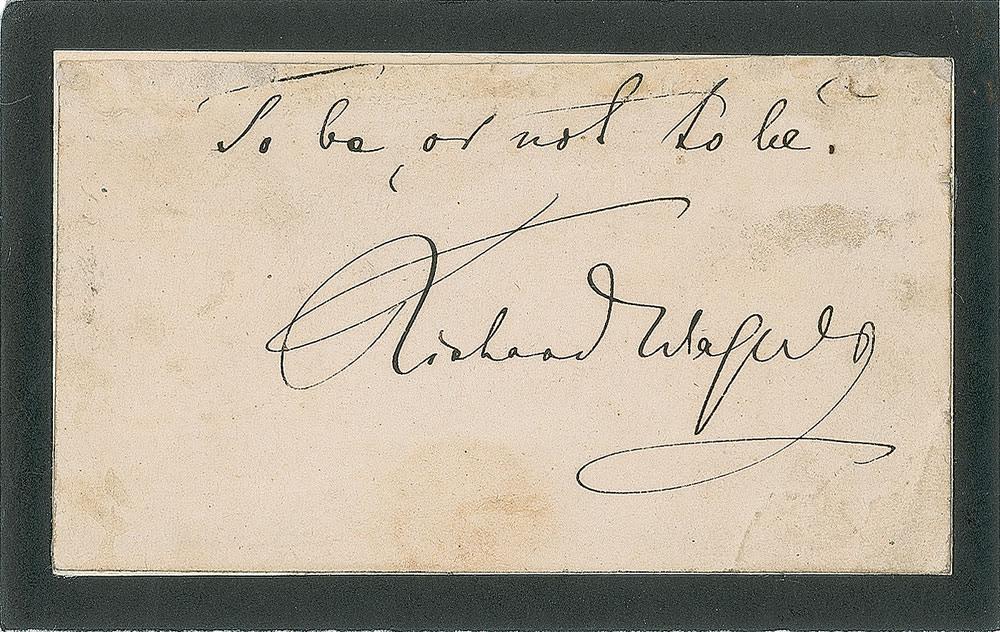 To be, or not to be.
Richard Wagner